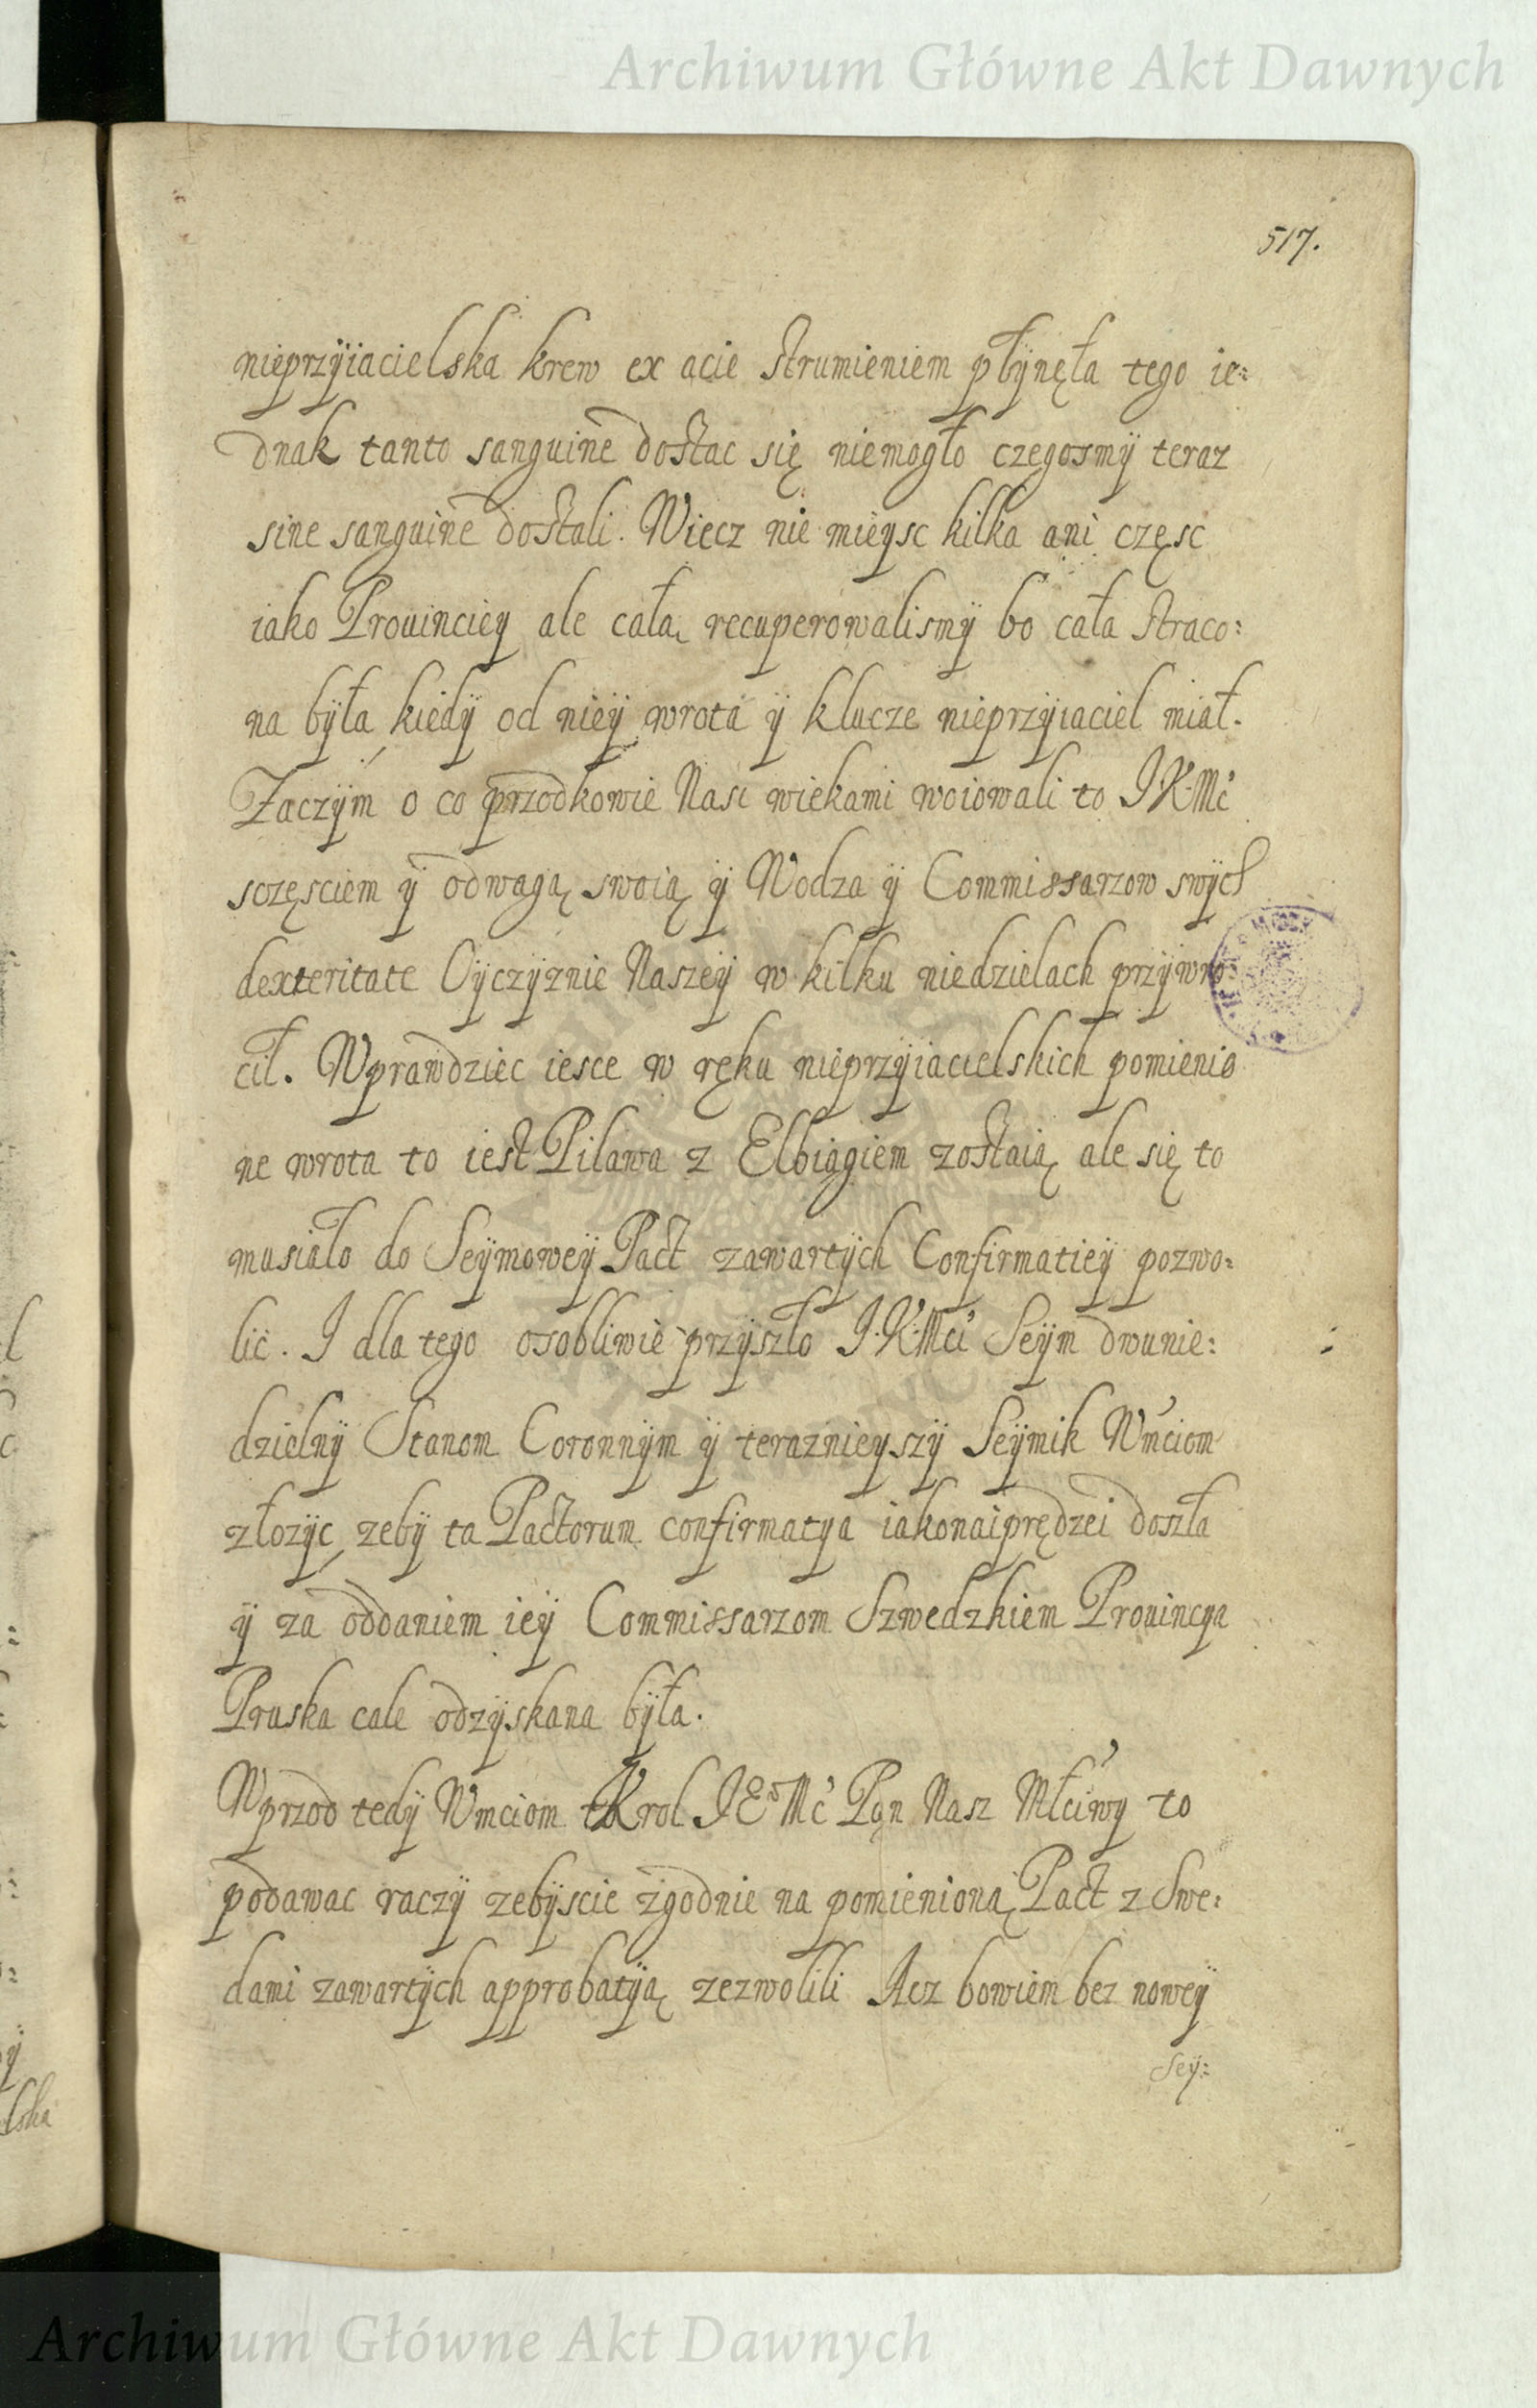 Archiwum Główne Akt Dawnych
517.
nieprzÿiacielska krew ex acie strumieniem płÿnęła tego ie=
dnak tanto sanguine dostac się niemogło czegosmÿ teraz
sine sanguine dostali. Wiecz nie mieysc kilka ani częsc
iako Prouinciey ale całą recuperowalismÿ bo cała straco=
na bÿła kiedÿ od nieÿ wrota ÿ klucze nieprzÿiaciel miał.
Zaczÿm o co przodkowie Nasi wiekami woiowali to J K Mć
sczęsciem ÿ odwagą swoią ÿ Wodza ÿ Commissarzow swÿch
dexteritate Oÿczÿznie Naszeÿ w kilku niedzielach przÿwro=
cił. Wprawdziec iesce w ręku nieprzÿiacielskich pomienio
ne wrota to iest Pilawa z Elbiągiem zostaią ale się to
musiało do Seÿmoweÿ Pact zawartÿch Confirmatieÿ pozwo=
lić. I dla tego osobliwie przÿszło J. K. Mci Seÿm dwunie=
dzielnÿ Stanom Coronnÿm ÿ teraznieyszÿ Seÿmik Wmciom
złozÿc zebÿ ta Pactorum confirmatya iakonaiprędzei doszła
ÿ za oddaniem ieÿ Commissarzom Szwedzkiem Prouincya
Pruska cale odzÿskana bÿła.
Wprzod tedÿ Wmciom Krol JEo Mć Pan Nasz Młciwy to
podawac raczÿ zebÿscie zgodnie na pomienioną Pact z Swe=
dami zawartÿch approbatÿą zezwolili Acz bowiem bez noweÿ
Sey=
Archiwum Główne Akt Dawnych